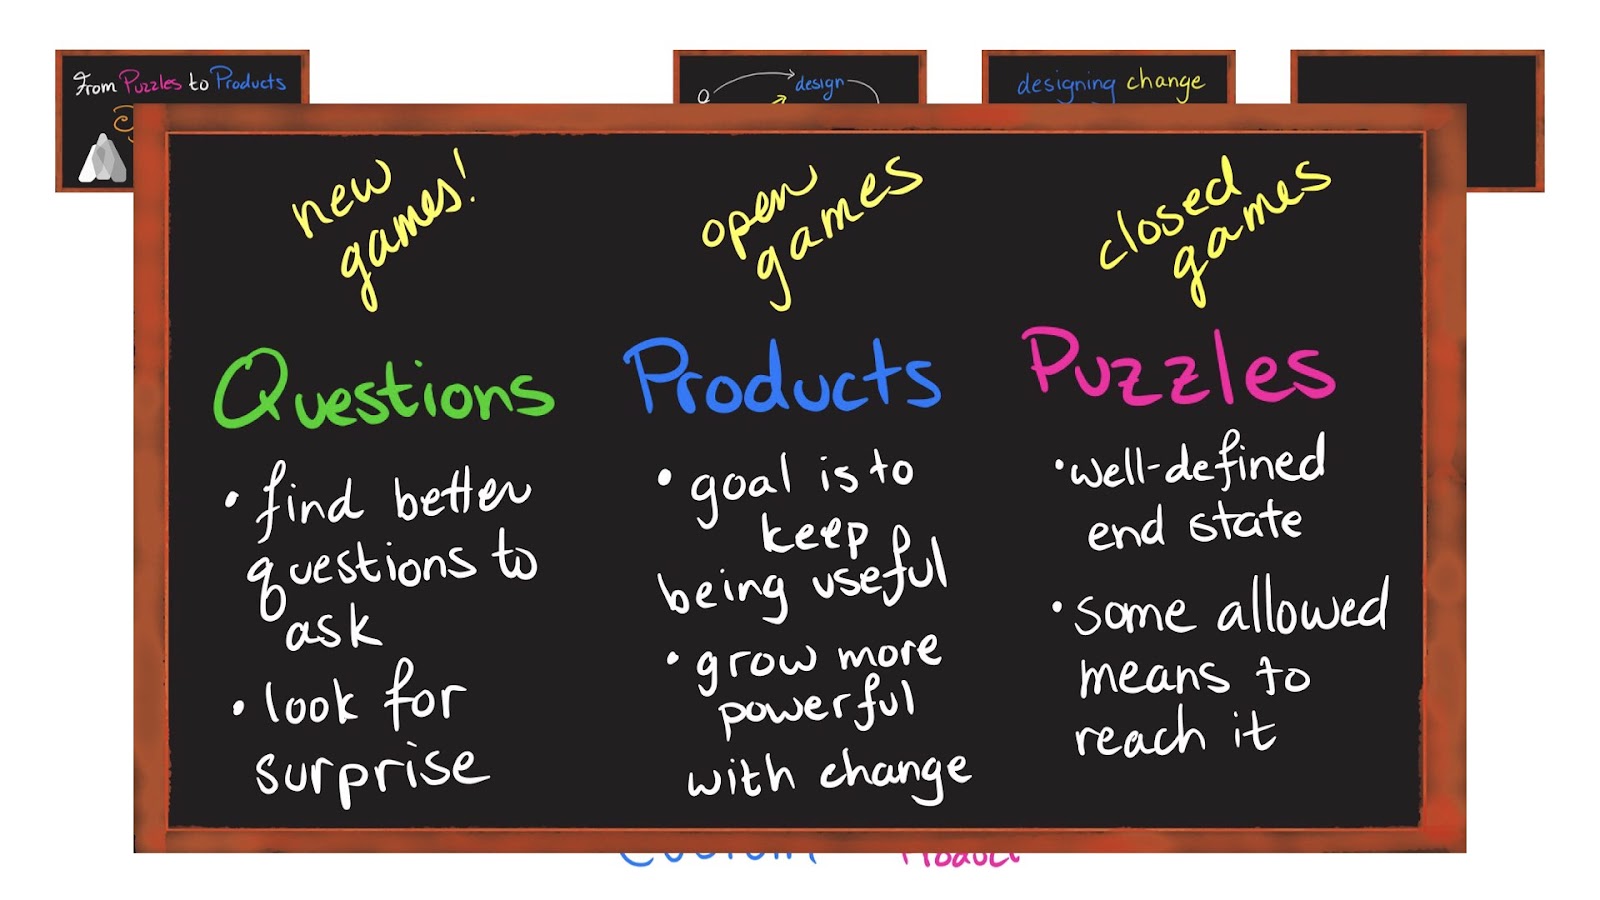 From Puzzles to Products
design
designing change
new
games!
open
games
closed
games
Questions
Products
Puzzles
• find better
questions to
ask
• look for
surprise
• goal is to
keep
being useful
• grow more
powerful
with change
• well-defined
end state
• some allowed
means to
reach it